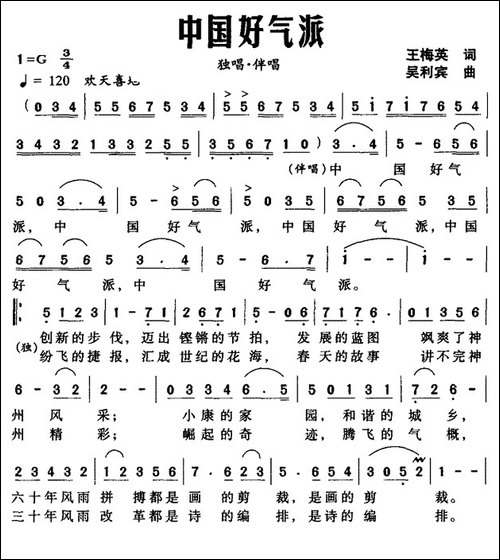 中国好气派
1=G 3/4 独唱·伴唱 王梅英 词
♩=120 欢天喜地 吴利宾 曲
(0 3 4 | 5 5 6 7 5 3 4 | 5 5 6 7 5 3 4 | 5 i 7 i 7 6 5 4 |
3 4 3 2 1 3 3 2 5 5 | 6 5 6 7 5 6 7 1 0 ) | 3 . 4 | 5 - 6 5 6 |
(伴唱)中 国 好 气
5 0 3 . 4 | 5 - 6 5 6 | 5 0 5 3 5 | 6 7 5 6 5 3 5 |
派, 中 国 好 气 派, 中国 好 气 派, 中国
6 7 5 6 5 3 . 4 | 5 - 6 5 6 | 7 - - | i - - | i - - |
好 气 派, 中 国 好 气 派。
5 1 2 3 | 1 - 7 1 | 2 6 7 1 | 6 - 7 6 | 5 1 3 5 | 6 7 1 2 |
(独) 创新的步 伐, 迈出 铿锵的节 拍, 发 展的蓝图 飒爽了神
纷飞的捷 报, 汇成 世纪的花 海, 春 天的故事 讲不完神
6 - 3 2 | 2 - - | 0 3 3 3 4 | 6 . 5 | 5 0 1 3 1 | 7 7 6 5 |
州 风 采; 小康的家 园, 和谐的 城 乡,
州 精 彩; 崛起的奇 迹, 腾飞的 气 概,
2 3 4 3 2 | 1 2 3 5 6 | 7 . 6 2 3 | 5 - 1 2 | 3 0 5 2 | 1 - - |
六十年风雨 拼 搏都是 画 的剪 裁, 是画 的 剪 裁。
三十年风雨 改 革都是 诗 的编 排, 是诗 的 编 排。